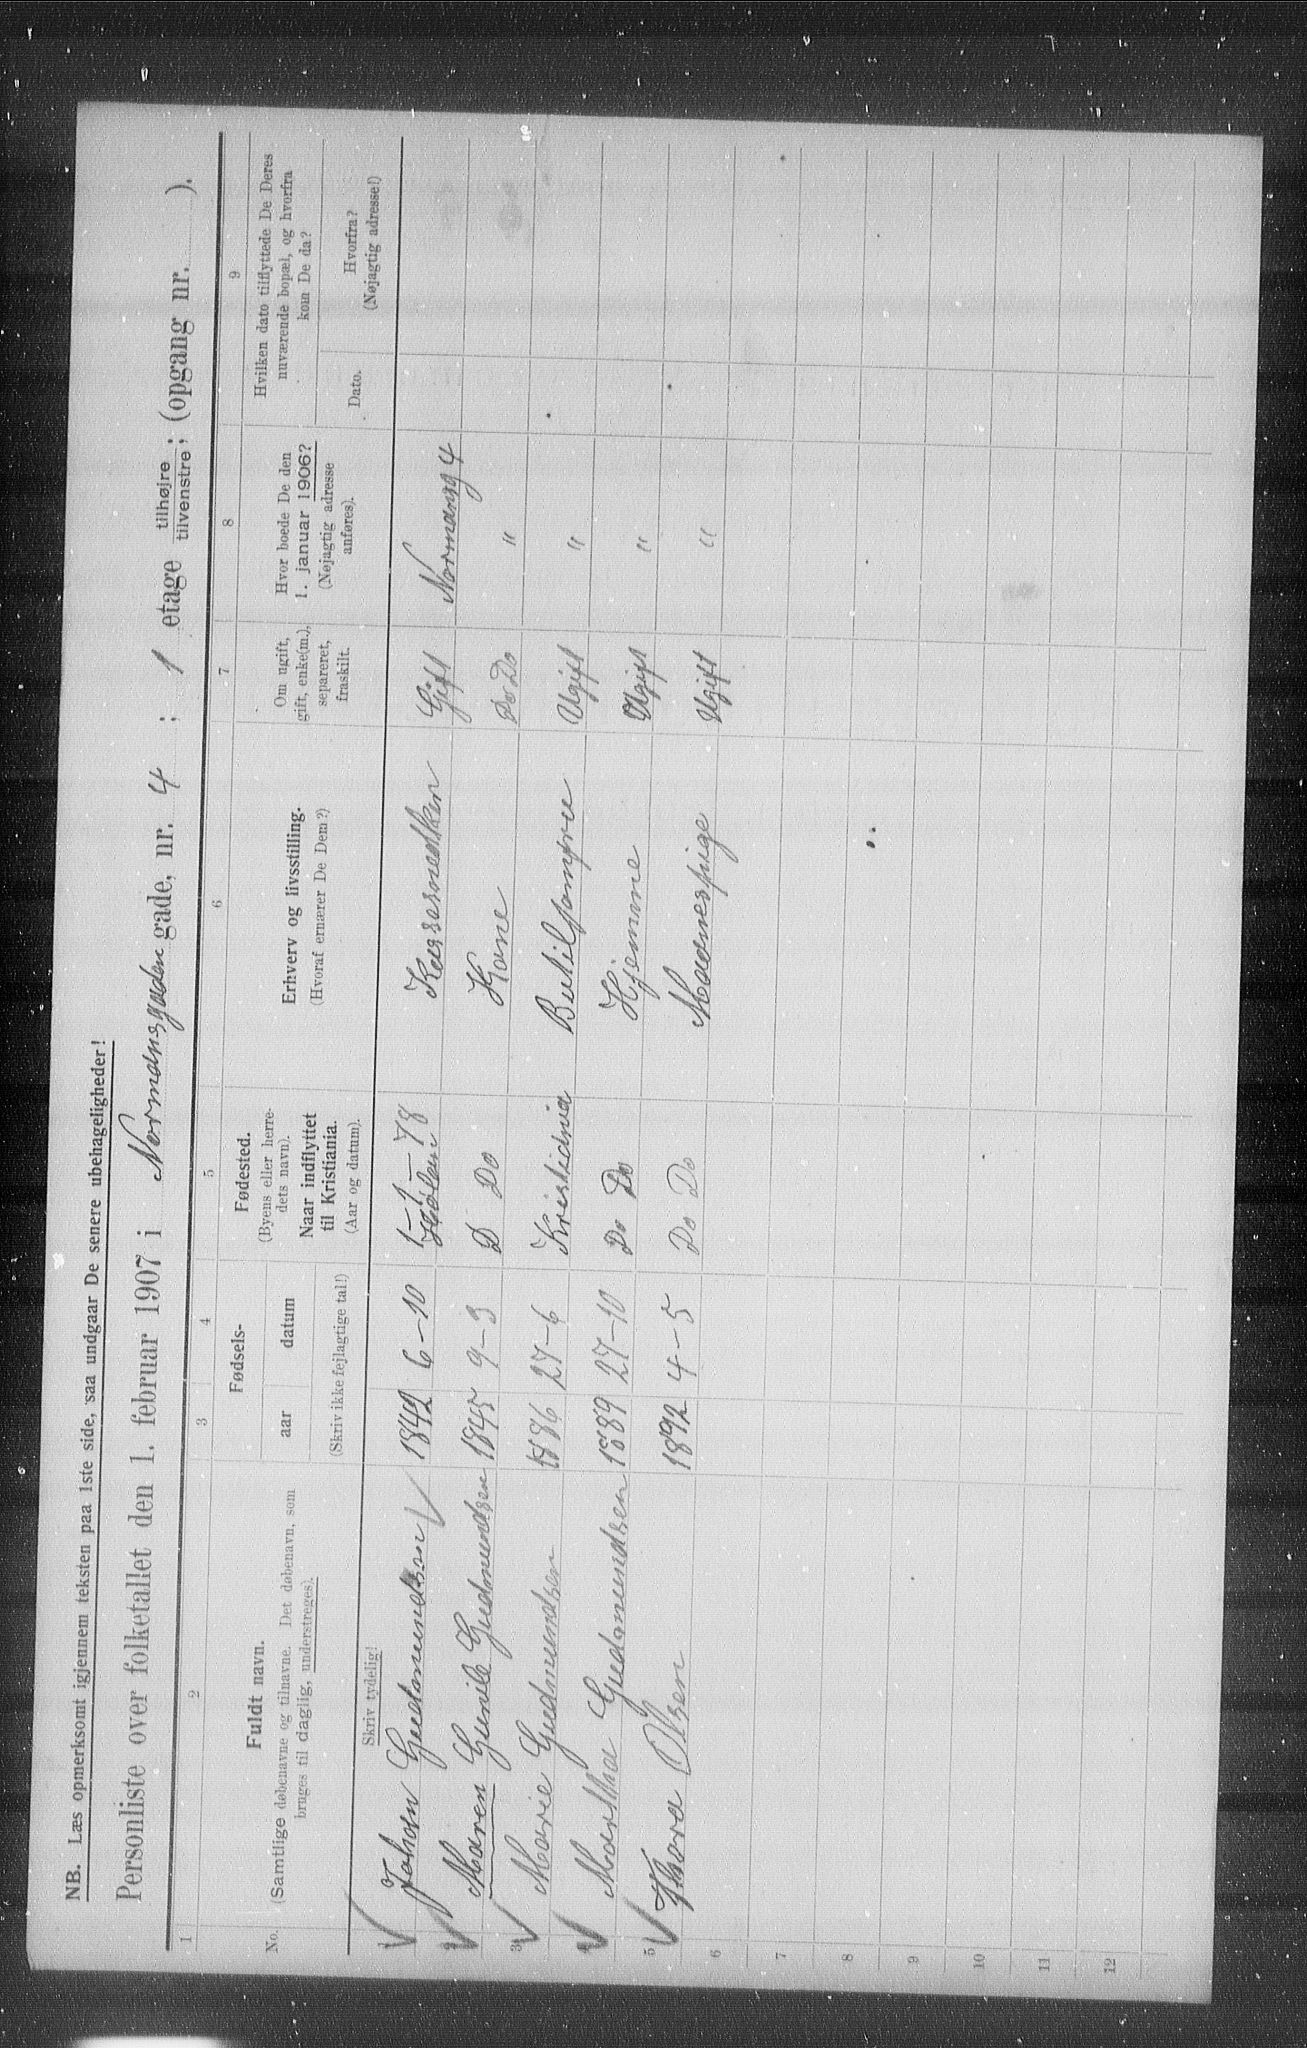 NB. Læs opmerksomt igjennem teksten paa 1ste side, saa undgaar De senere ubehageligheder!
Personliste over folketallet den 1. februar 1907 i Normansgaden gade, nr. 4 ; 1 etage tilhøjre/tilvenstre; (opgang nr. ).
1 2 3 4 5 6 7 8 9
No.
Fuldt navn.
(Samtlige døbenavne og tilnavne. Det døbenavn, som
bruges til daglig, understreges).
Skriv tydelig!
Fødsels-
aar datum
(Skriv ikke fejlagtige tal!)
Fødested.
(Byens eller herre-
dets navn).
Naar indflyttet
til Kristiania.
(Aar og datum).
Erhverv og livsstilling.
(Hvoraf ernærer De Dem?)
Om ugift,
gift, enke(m.),
separeret,
fraskilt.
Hvor boede De den
1. januar 1906?
(Nøjagtig adresse
anføres).
Hvilken dato tilflyttede De Deres
nuværende bopæl, og hvorfra
kom De da?
Dato.
Hvorfra?
(Nøjagtig adresse!)
1 Johan Gudmundsen 1842 6-10 1-1-78 Gift Normansg 4
2 Maren Gunild Gudmundsen 1845 9-3 D Do Kone Do Do "
3 Marie Gudmundsen 1886 27-6 Kristiania Butikjomfru Ugift "
4 Martha Gudmundsen 1889 27-10 Do Do Hjemme Ugift "
5 Thora Olsen 1892 4-5 Do Do Ugift "
6
7
8
9
10
11
12